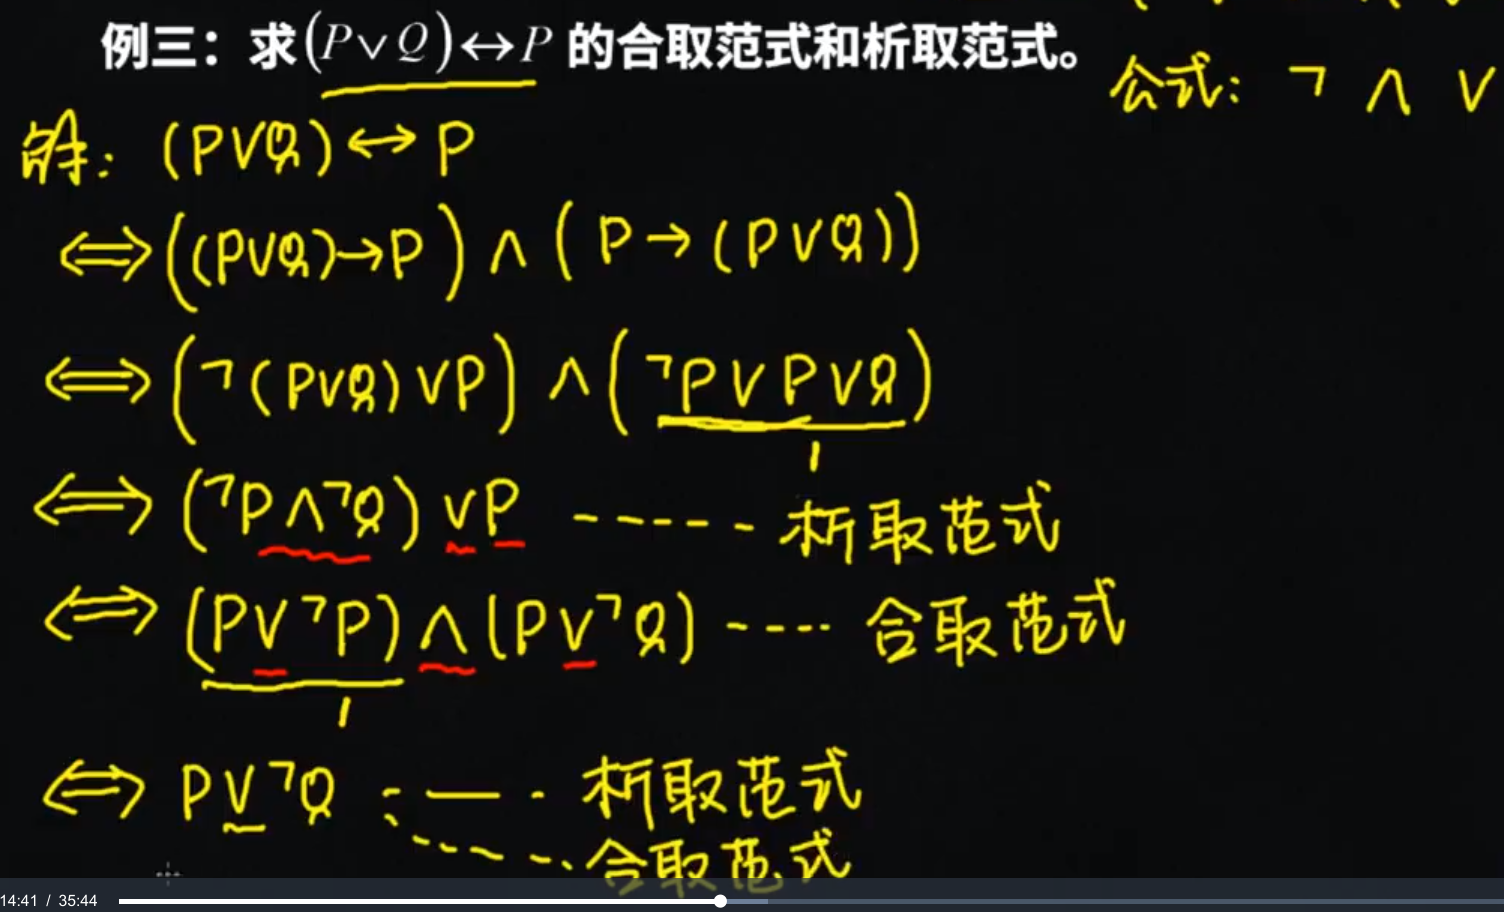 例三：求(P∨Q)↔P 的合取范式和析取范式。
公式: ¬ ∧ ∨
解: (P∨Q)↔P
⇔((P∨Q)→P)∧(P→(P∨Q))
⇔(¬(P∨Q)∨P)∧(¬P∨P∨Q)
1
⇔(¬P∧¬Q)∨P ----- 析取范式
⇔(P∨¬P)∧(P∨¬Q) ---- 合取范式
1
⇔P∨¬Q ---- 析取范式
---- 合取范式
14:41 / 35:44